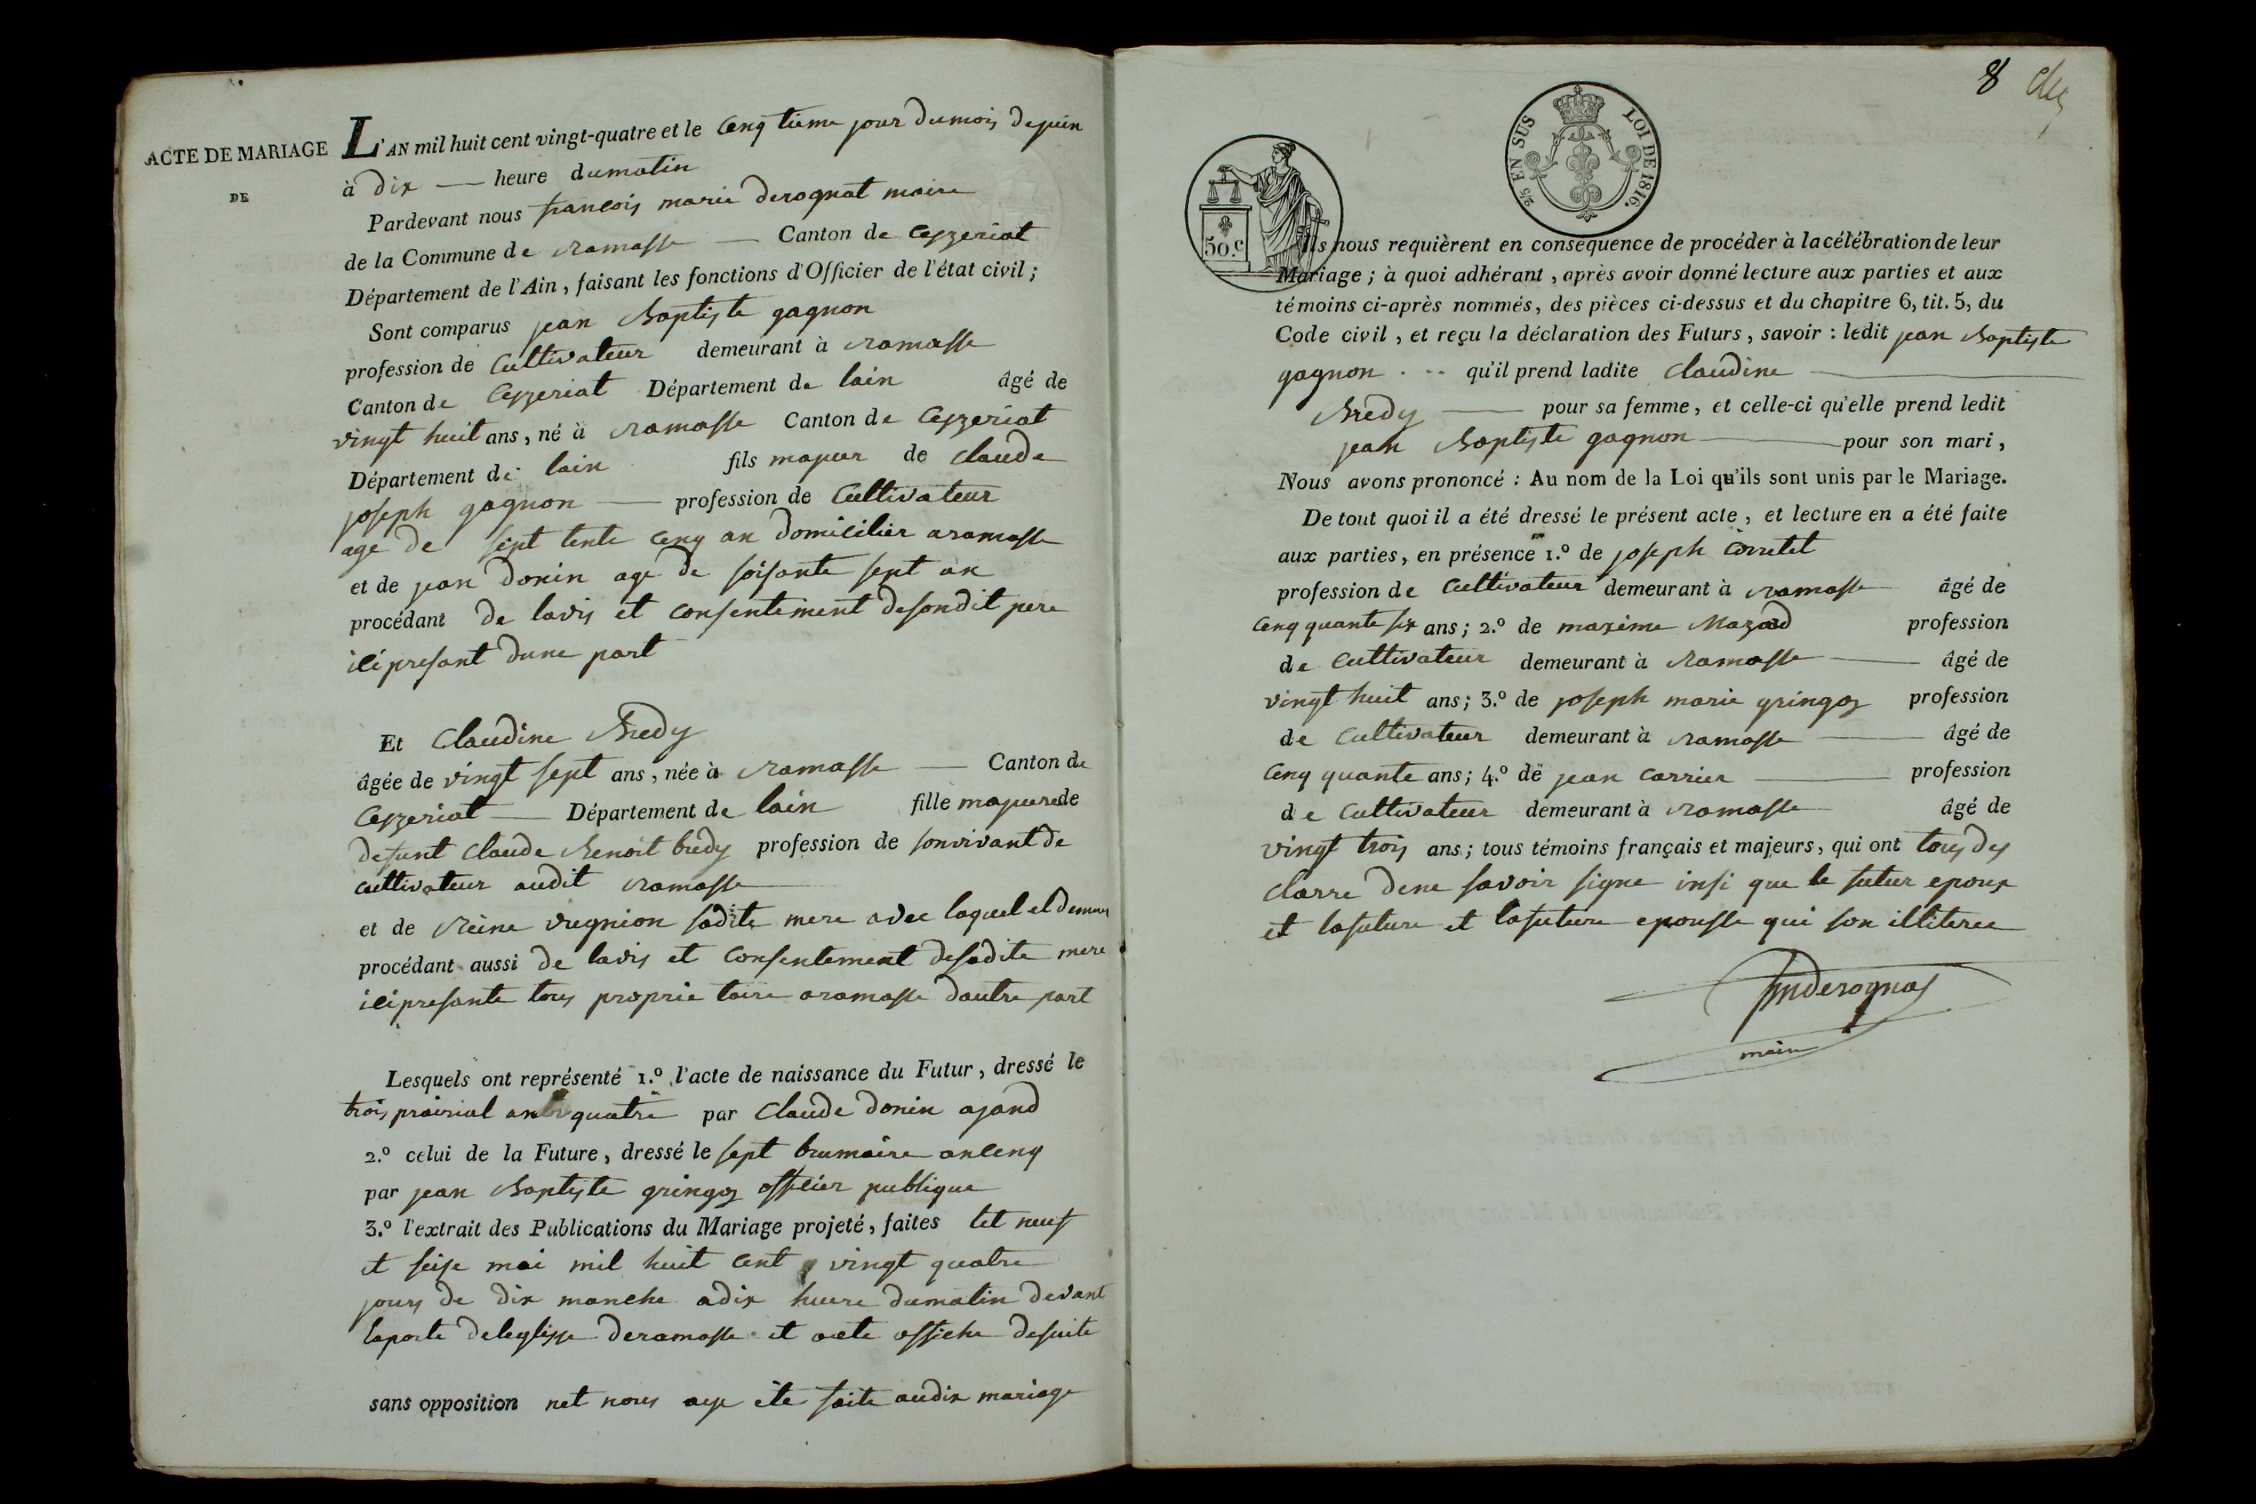 ACTE DE MARIAGE
DE
L'AN mil huit cent vingt-quatre et le cenq tieme jour dumois dejuin
à dix heure dumatin
Pardevant nous francois marie derognat maire
de la Commune de ramasse Canton de Ceyzeriat
Département de l'Ain, faisant les fonctions d'Officier de l'état civil;
Sont comparus jean Baptiste gagnon
profession de Cultivateur demeurant à ramasse
Canton de Ceyzeriat Département de lain âgé de
vingt huit ans, né à ramasse Canton de Ceyzeriat
Département de lain fils majeur de Claude
joseph gagnon profession de Cultivateur
age de sept tente cenq an domicilier aramasse
et de jean donin age de soisante sept an
procédant de lavis et consentement desondit pere
ici presant dune part
Et Claudine Bredy
âgée de vingt sept ans, née à ramasse Canton de
Ceyzeriat Département de lain fille majeure de
defunt Claude Benoit bredy profession de sonvivant de
cultivateur audit ramasse
et de Reine vugnion sadite mere avec laquel el demeur
procédant aussi de lavis et consentement desadite mere
ici presante tous proprie taire aramasse dautre part
Lesquels ont représenté 1.º l'acte de naissance du Futur, dressé le
trois prairial an quatre par Claude donin ajand
2.º celui de la Future, dressé le sept brumaire ancenq
par jean Baptiste gringoz officier publique
3.º l'extrait des Publications du Mariage projeté, faites let neuf
et seise mai mil huit cent vingt quatre
jours de dix manche adix heure dumatin devant
laporte deleglisse deramasse et acte affiche desuite
sans opposition net nous aye ete faite audix mariage
8
50.c
25 EN SUS LOI DE 1816.
Ils nous requièrent en conséquence de procéder à la célébration de leur
Mariage; à quoi adhérant, après avoir donné lecture aux parties et aux
témoins ci-après nommés, des pièces ci-dessus et du chapitre 6, tit. 5, du
Code civil, et reçu la déclaration des Futurs, savoir: ledit jean Baptiste
gagnon qu'il prend ladite Claudine
Bredy pour sa femme, et celle-ci qu'elle prend ledit
jean Baptiste gagnon pour son mari,
Nous avons prononcé: Au nom de la Loi qu'ils sont unis par le Mariage.
De tout quoi il a été dressé le présent acte, et lecture en a été faite
aux parties, en présence 1.º de joseph corretet
profession de Cultivateur demeurant à ramasse âgé de
cenq quante six ans; 2.º de maxime Mazod profession
de Cultivateur demeurant à ramasse âgé de
vingt huit ans; 3.º de joseph marie gringoz profession
de Cultivateur demeurant à ramasse âgé de
cenq quante ans; 4.º de jean carrier profession
de Cultivateur demeurant à ramasse âgé de
vingt trois ans; tous témoins français et majeurs, qui ont tous de
clarre dene savoir signe insi que le futur epoux
et lafuture et lafuture epousse qui son illiteree
fmderognat
maire